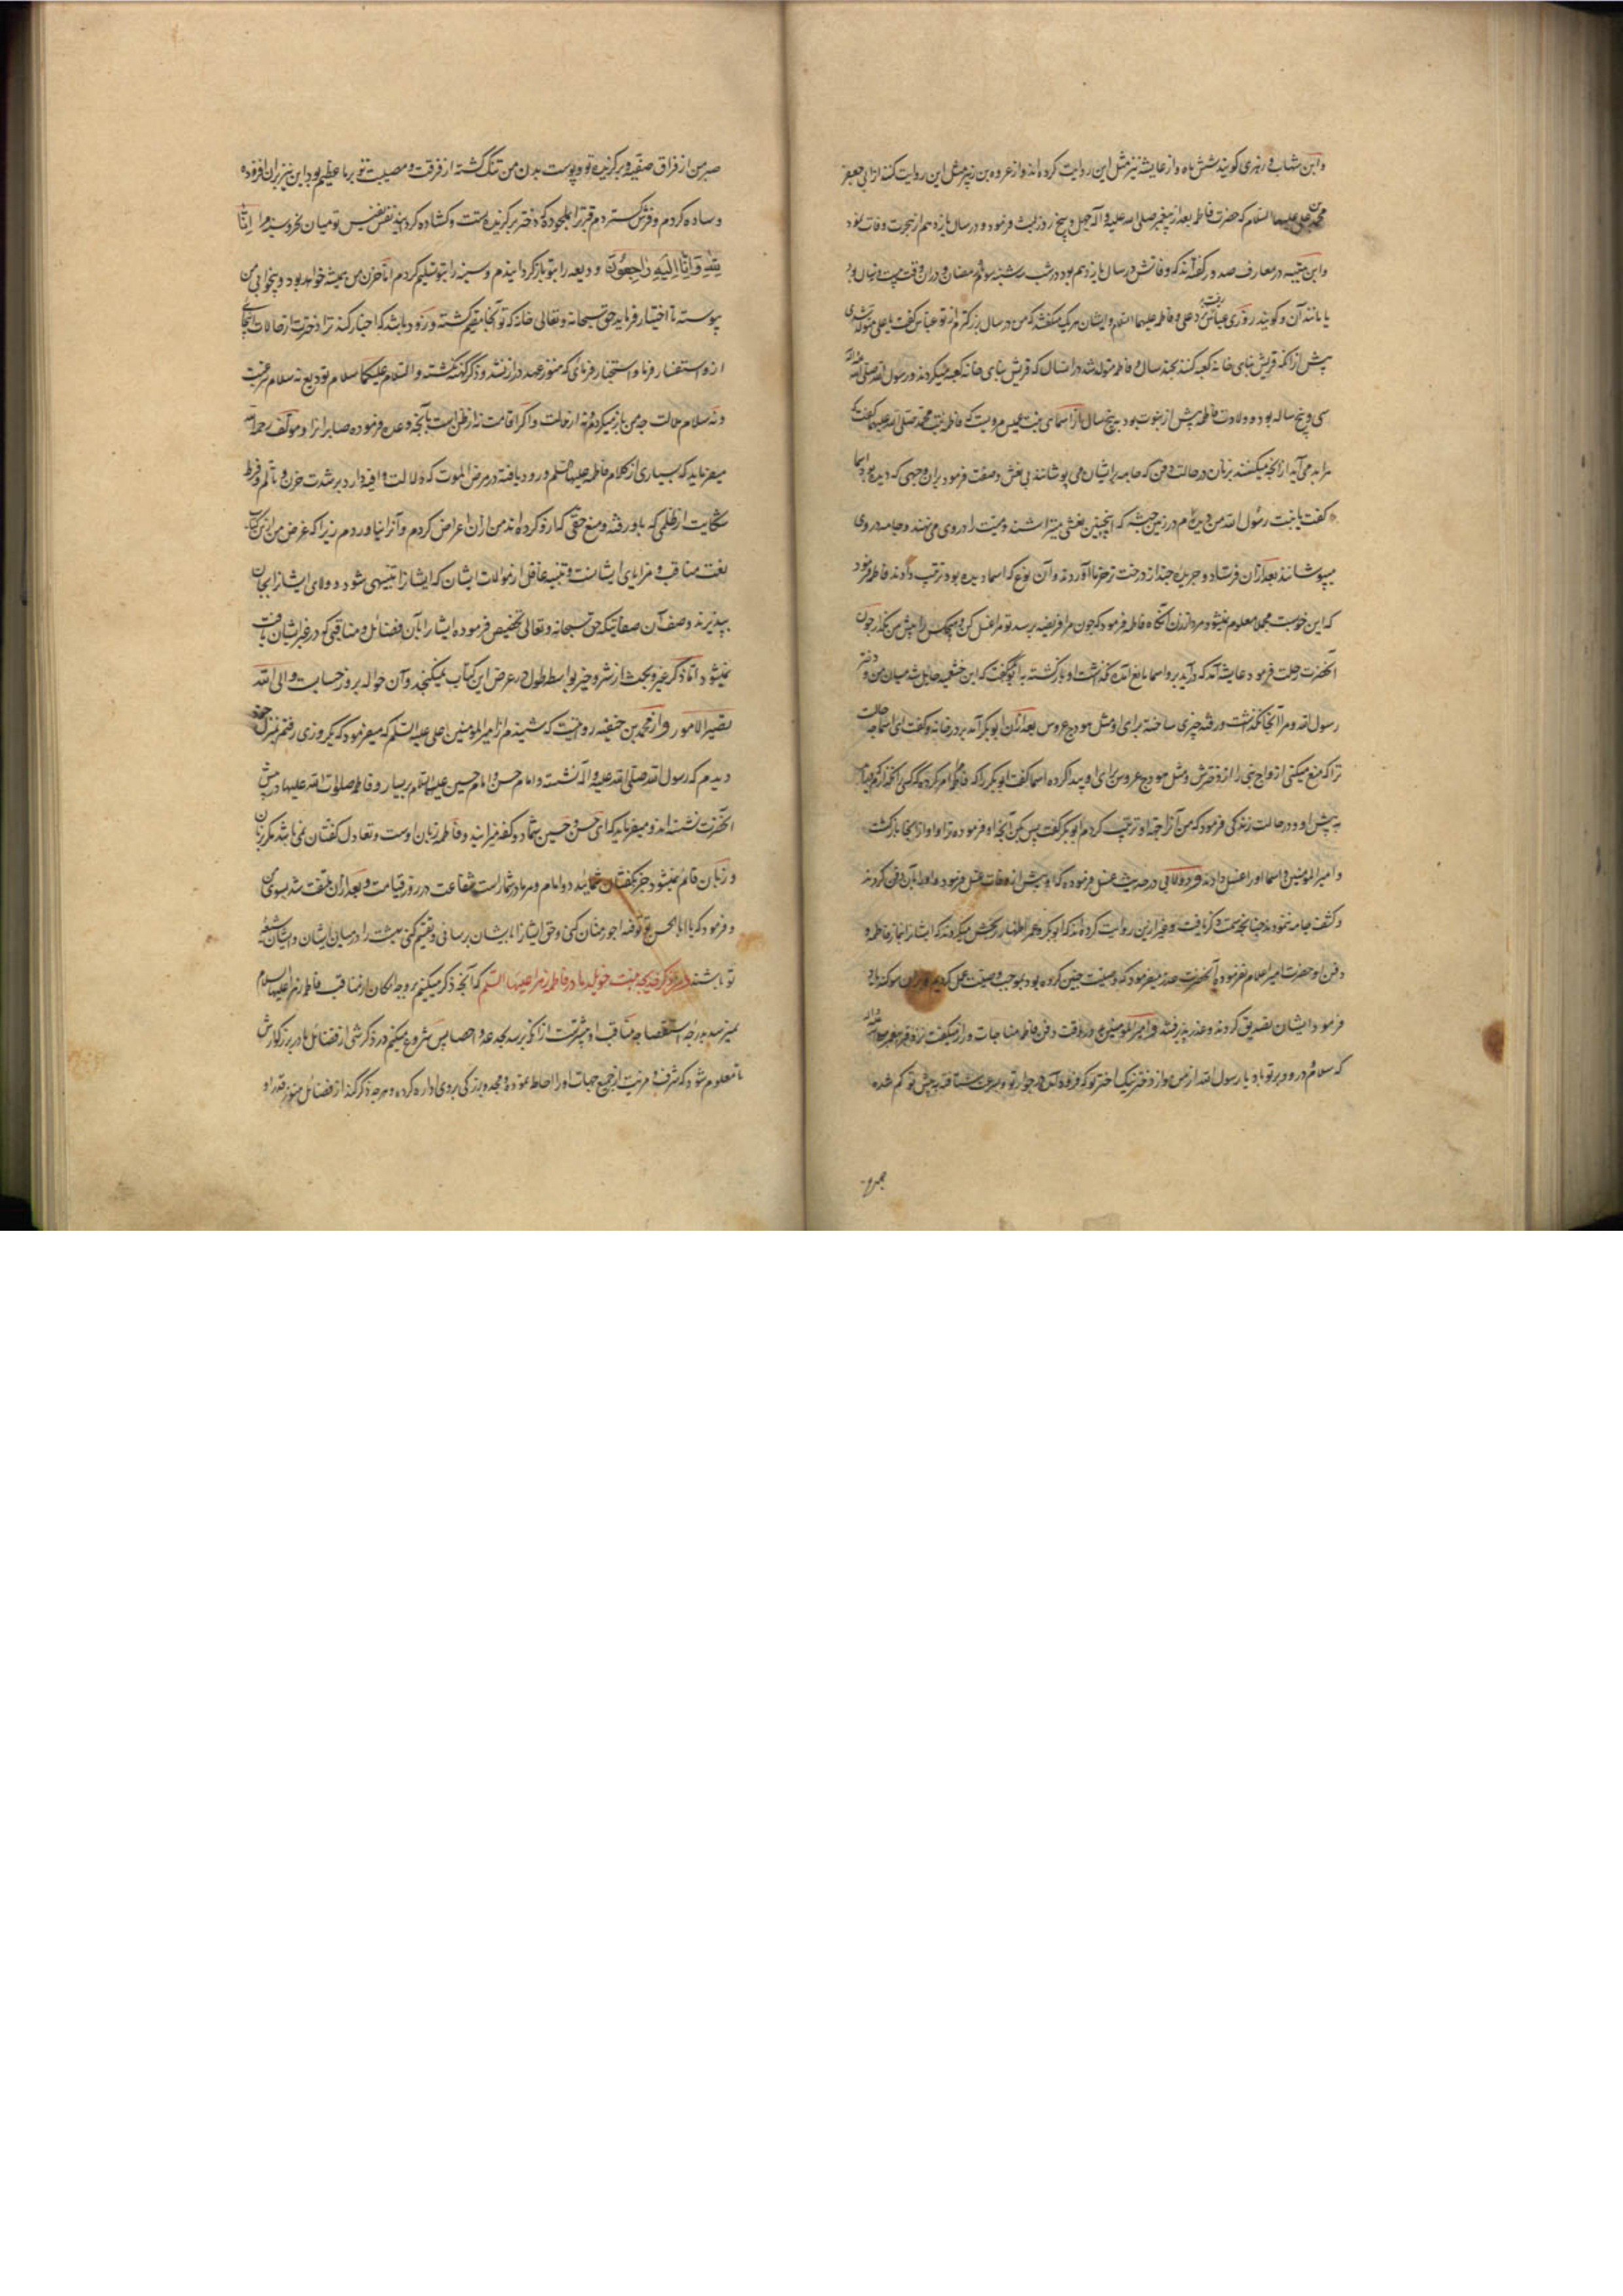 وابن شهاب زهری کویند شش ماه و از عایشه نیز مثل این روایت کرده اند و از عروه بن زبیر مثل این روایت کنند از ابی جعفر
محمد بن علی علیهما السلام که حضرت فاطمه بعد از پیغمبر صلی الله علیه و آله چهل و پنج روز زیست فرمود و در سال یازدهم از هجرت وفات نمود
وابن قتیبه در معارف صد روز کفته اند که وفاتش در سال یازدهم بود در شب سه شنبه سوم رمضان و در آن وقت بیست و نه سال بود
یا مانند آن و کویند روزی عباس نزد علی و فاطمه علیهما السلام و ایشان هر یک میکفتند که من در سال بزرکترم از تو عباس کفت یا علی متولد شدی
پیش از آنکه قریش بنای خانه کعبه کنند بچند سال و فاطمه متولد شد در آنسال که قریش بنای خانه کعبه میکردند و رسول الله صلی الله علیه و آله
سی و پنج ساله بوده و ولادت فاطمه پیش از نبوت بود به پنج سال از اسمای بنت عمیس مرویست که فاطمه بنت محمد صلی الله علیهما کفت که
مرا بد می آید از آنچه میکنند بزنان در حالت دفن که جامه بر ایشان می پوشانند بی نعش و صفت فرمود بر آن وجهی که دیده بود اسما
کفت یا بنت رسول الله من دیده ام در زمین حبشه که اینچنین نعشی میتراشند و میت را در وی می نهند و جامه در وی
میپوشانند بعد از آن فرستاد و جریده چند از درخت تر خرما آوردند و آن نوع که اسما دیده بود ترتیب دادند فاطمه فرمود
که این خوبست مجملا معلوم نمیشود مرد از زن آنکاه فاطمه فرمود که چون مرا فریضه برسد تو مرا غسل کن و هیچکس را پیش من مکذار چون
آنحضرت رحلت فرمود عایشه آمد که در آید بر و اسما مانع آمد نکذاشت او باز کشته به ابوبکر کفت که این خثعمیه حایل شد میان من و دختر
رسول الله و مرا آنجا نکذاشت و رفته چیزی ساخته برای او مثل هودج عروس بعد از آن ابوبکر آمد بر در خانه و کفت ای اسما چه حالت
ترا که منع میکنی ازواج نبی را از دخترش و مثل هودج عروس برای او پیدا کرده اسما کفت ابوبکر را که فاطمه مرا امر کرده که کسی را نکذارم
پیش او و در حالت زندکی فرمود که من آنرا جهة او ترتیب کردم ابوبکر کفت پس بکن آنچه او فرموده ترا و او از آنجا بازکشت
و امیر المؤمنین و اسما او را غسل دادند و دولابی در حدیث غسل فرموده که او پیش از وفات غسل فرمود و او را بآن دفن کردند
و کشف جامه ننمودند چنانچه سمت ذکر یافت و غیر از این روایت کرده اند که ابوبکر و عمر اظهار رنجش میکردند که ایشانرا نماز فاطمه و
دفن او حضرت امیر اعلام نفرموده آنحضرت عذر میفرمود که وصیت چنین کرده بود بموجب وصیت عمل کردیم و بر آن سوکند یاد
فرمود ایشان تصدیق کردند و عذر پذیرفتند و امیر المؤمنین ع در وقت دفن فاطمه مناجات و راز میکفت نزد قبر پیغمبر صلی الله علیه و آله
که سلام و درود بر تو باد یا رسول الله از من و از دختر نیک اختر تو که فرود آمده در جوار تو و بسرعت شتافته پیش تو کم شده
صبر من
صبر من از فراق صفیه و برکزیده تو و پوست بدن من تنک کشته از فرقت و مصیبت تو بر ما عظیم بود این نیز بر آن افزوده
وساده کردم و فرش کستردم قبر ترا بلحود که دختر برکزیده تست و کشاده کردید نفس نفیس تو میان نحر و سینه مرا اِنّا
لِلّٰهِ وَاِنّا اِلَیهِ رٰاجِعُونَ و ودیعه را بتو باز کردانیدم و سینه را بتو تسلیم کردم اما حزن من همیشه خواهد بود و بیخوابی من
پیوسته تا اختیار فرماید حق سبحانه و تعالی خانه که تو آنجا مقیم کشته و زود باشد که اخبار کند ترا دخترت از حالات اینجای
از و استفسار فرما و استخبار فرمای که هنوز عهد دراز نشد و ذکر کهنه نکشته و السلام علیکما سلام تودیع نه سلام
ونه سلام ملالت چه می بازمیکردم نه از ملالت و اکر اقامت نه از ظن است بآنچه وعده فرموده صابرانرا و مؤلف رحمه الله
میفرماید که بسیاری از کلام فاطمه علیها السلم ورود یافته در مرض الموت که دلالت وافیه دارد بر شدت حزن و تألم و فرط
شکایت از ظلمی که باو رفته و منع حقی که ازو کرده اند من از آن اعراض کردم و آنرا نیاوردم زیرا که غرض من از این کتاب
نعت مناقب و مزایای ایشانست و تنبیه غافل از موالات ایشان که ایشانرا تنبیهی شود و ولای ایشانرا بجان
بپذیرند و وصف آن صفاتیکه حق سبحانه و تعالی تخصیص فرموده ایشانرا بآن فضائل و مناقبی که در غیر ایشان یافت
نمیشود اما ذکر غیر و بحث از شر و خیر بواسطه طول در عرض این کتاب نمیکنجد و آن حواله بروز حسابست و الی الله
تصیر الامور و از محمد بن حنفیه روایتست که شنیدم از امیر المؤمنین علی علیه السلم که میفرمود که یکروزی رفتم بمنزل خود
دیدم که رسول الله صلی الله علیه و آله نشسته و امام حسن و امام حسین علیهما السلم بر یسار و فاطمه صلوات الله علیها در پیش
آنحضرت نشسته اند و میفرماید که ای حسن و حسین شما دو کفه میزانید و فاطمه زبان اوست و تعادل کفتان نمی باشد مکر بزبان
و زبان قائم نمیشود جز بکفتان شما هر دو امام و مر مادر شما راست شفاعت در روز قیامت و بعد از آن ملتفت شد بسوی من
و فرمود که یا ابا الحسن تو توفیه اجور مؤمنان کنی و حق ایشانرا بایشان رسانی و تقسیم کنی بهشت را در میان ایشان و ایشان شیعه
تو باشند در ذکر خدیجه بنت خویلد مادر فاطمه زهرا علیها السلم که آنچه ذکر میکنیم بر وجه امکان از مناقب فاطمه زهرا علیها السلام
نمیرسد بدرجه استقصا چه مناقب او بیشترست از آنکه برسد بحد عد و احصا پس شروع میکنم در ذکر شی از فضائل مادر بزرکوارش
تا معلوم شود که شرف و مزیت از جمیع جهات او را احاطه نموده و مجد و بزرکی بروی اداره کرده و هر چه ذکر کنند از فضائل هنوز قدر او